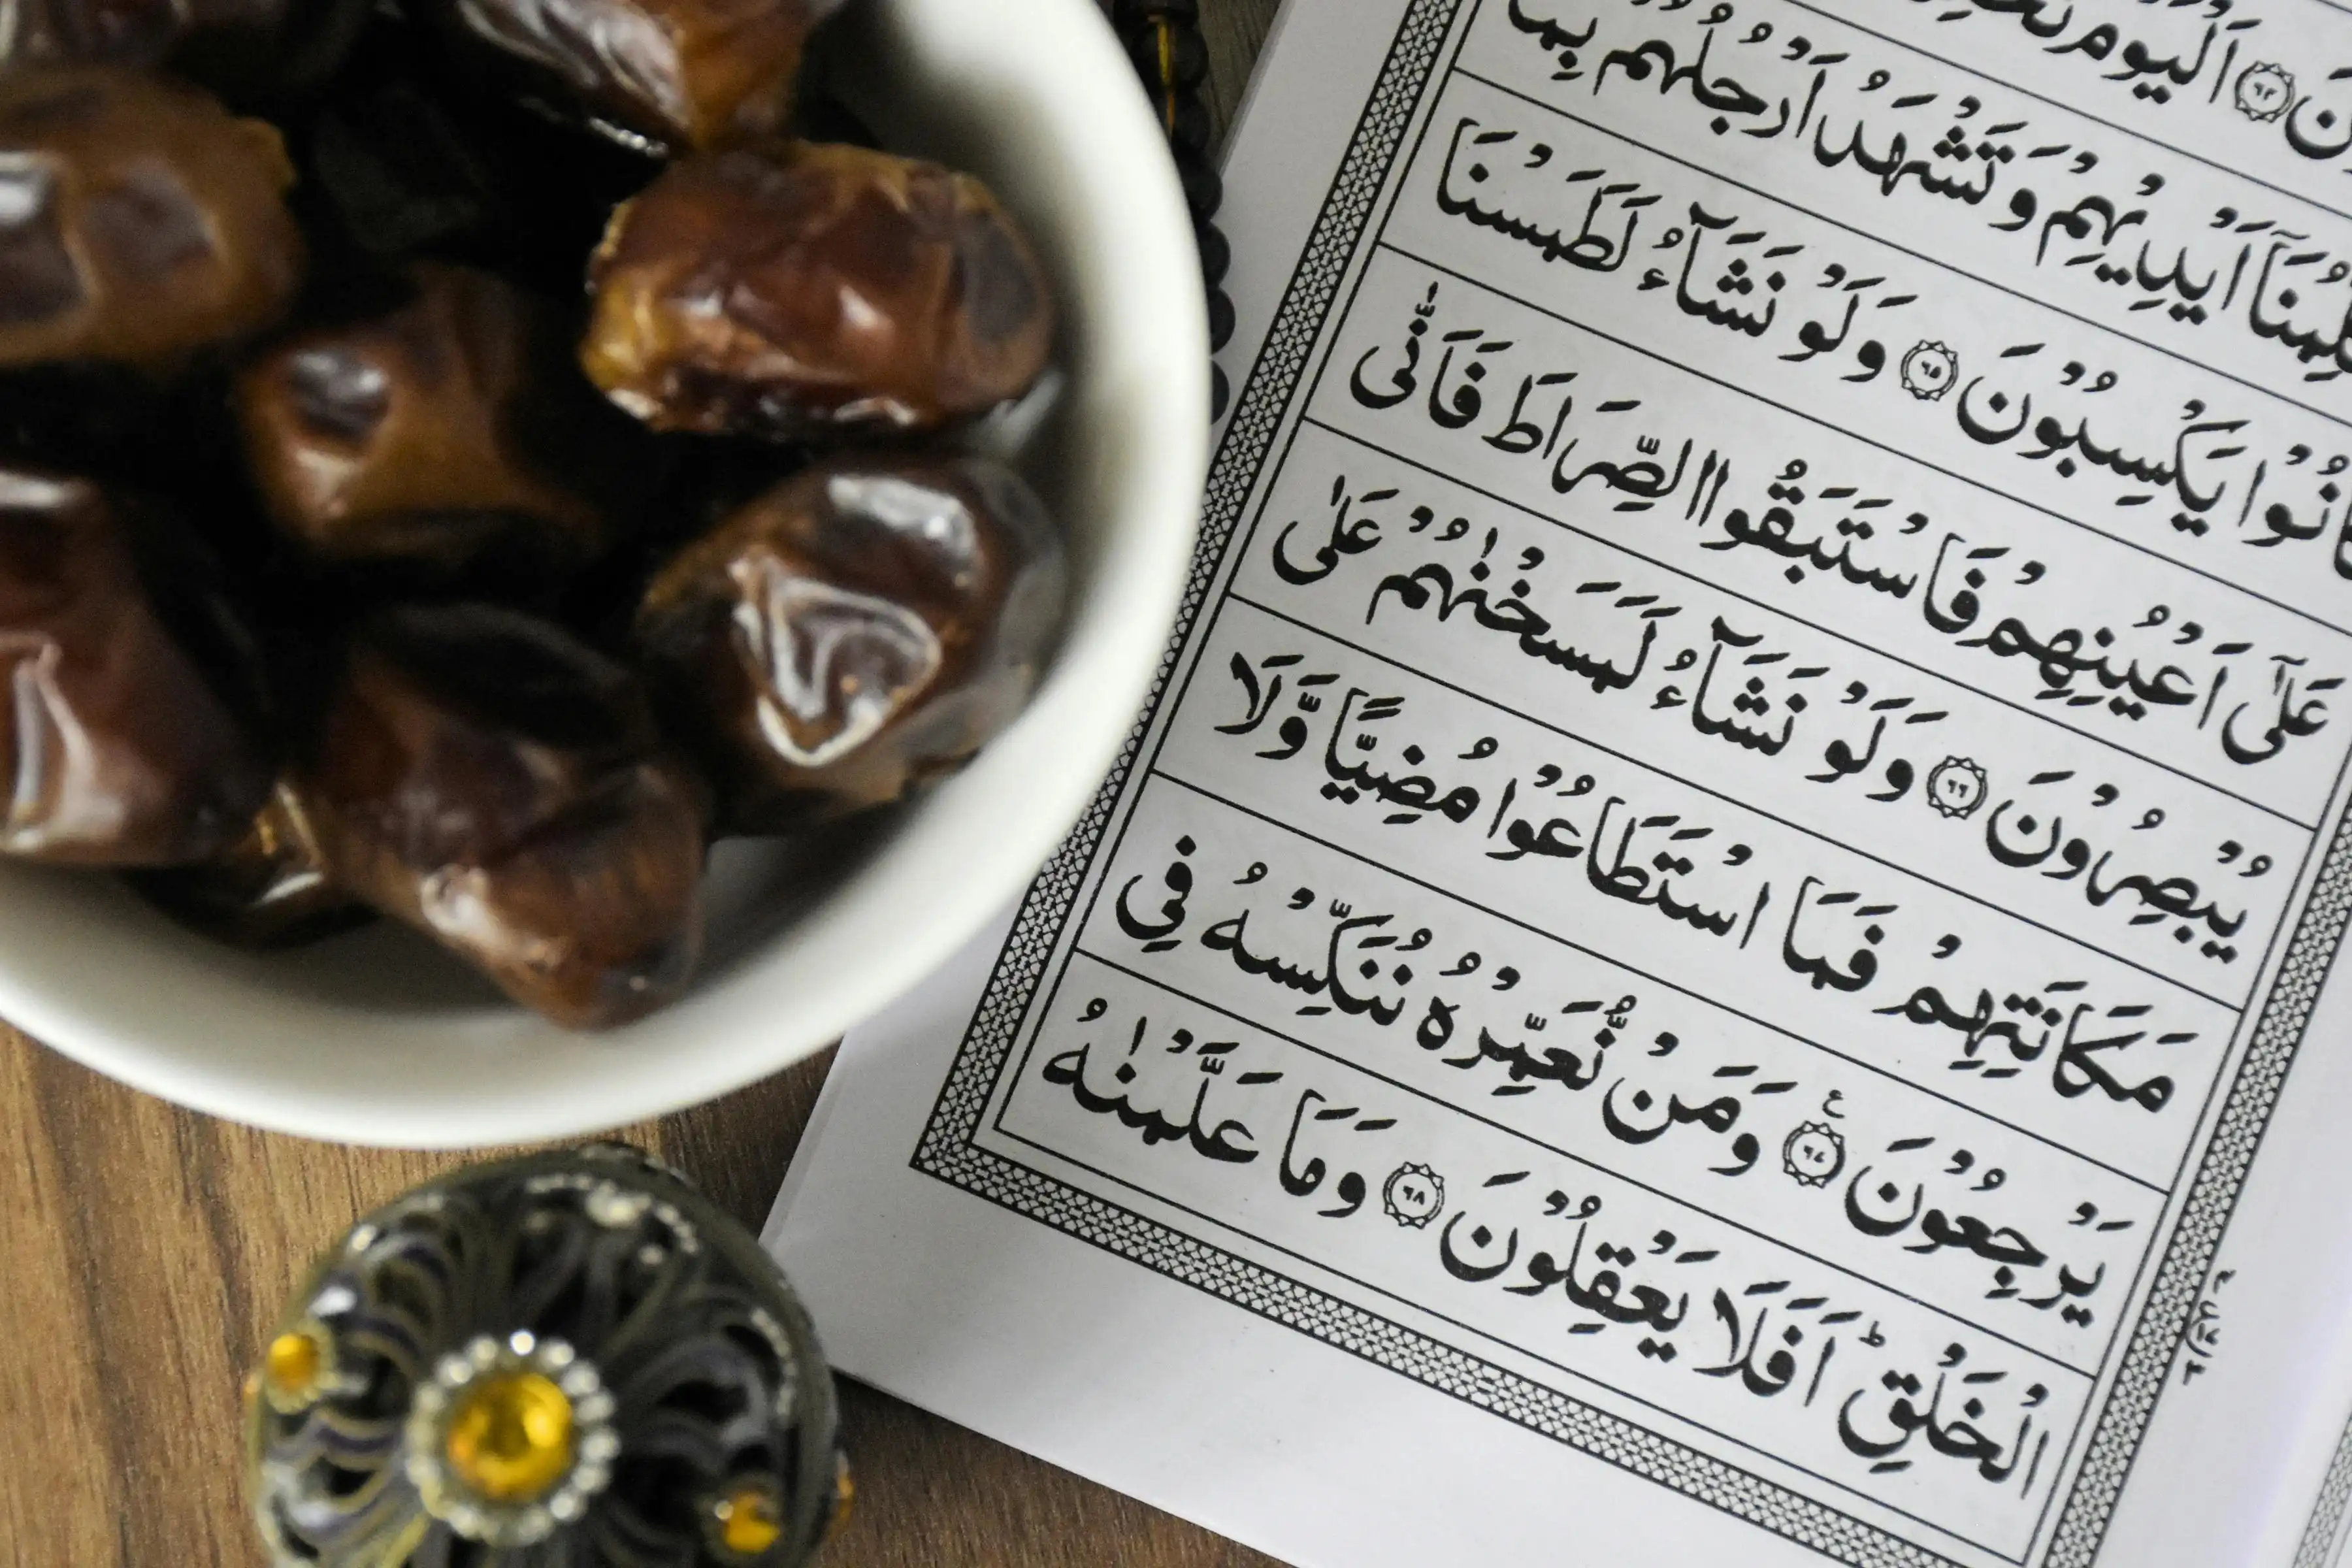 اَلْيَوْمَ
اَيْدِيْهِمْ وَتَشْهَدُ اَرْجُلُهُمْ بِمَا
كَانُوْا يَكْسِبُوْنَ ٦٥ وَلَوْ نَشَآءُ لَطَمَسْنَا
عَلٰٓى اَعْيُنِهِمْ فَاسْتَبَقُوا الصِّرَاطَ فَاَنّٰى
يُبْصِرُوْنَ ٦٦ وَلَوْ نَشَآءُ لَمَسَخْنٰهُمْ عَلٰى
مَكَانَتِهِمْ فَمَا اسْتَطَاعُوْا مُضِيًّا وَّلَا
يَرْجِعُوْنَ ٦٧ ع وَمَنْ نُّعَمِّرْهُ نُنَكِّسْهُ فِي
الْخَلْقِ ؕ اَفَلَا يَعْقِلُوْنَ ٦٨ وَمَا عَلَّمْنٰهُ